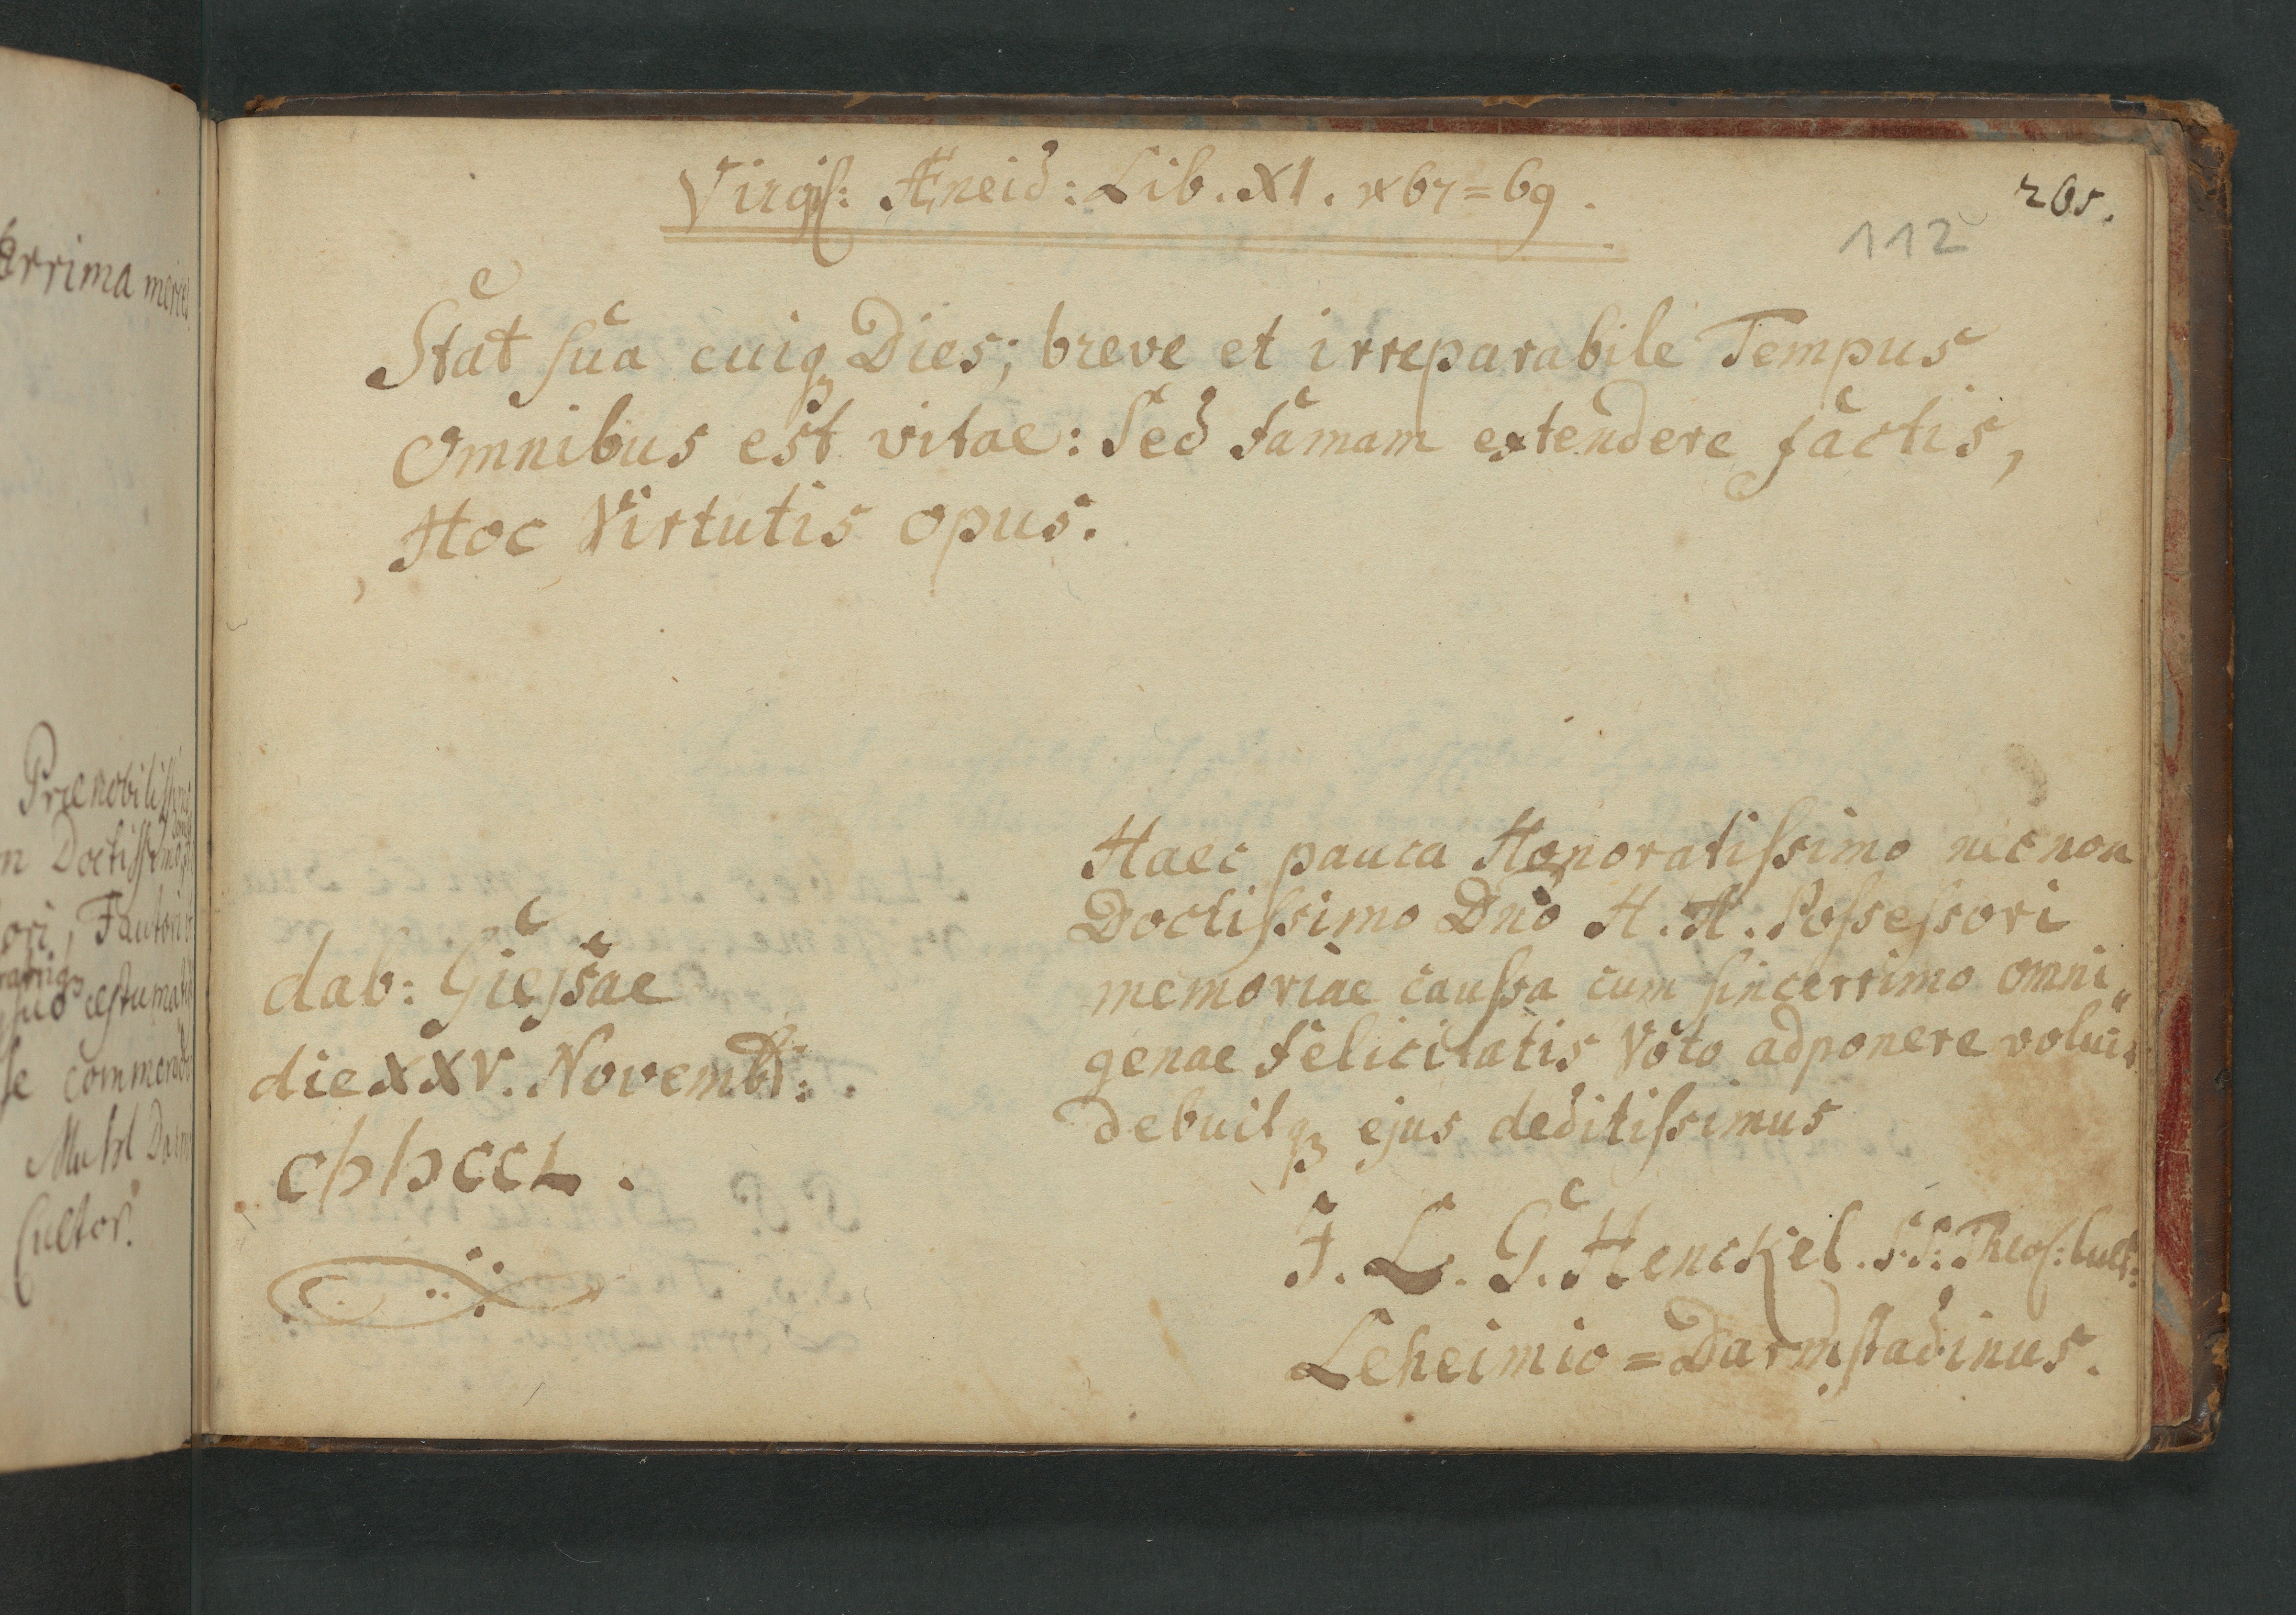 Virgil: Æneid: Lib. XI. 67=69.
205.
112
Stat sua cuiq Dies; breve et irreparabile Tempus
Omnibus est vitae: Sed Famam extendere factis,
Hoc Virtutis opus.
Haec pauca Honoratissimo nec non
Doctissimo Dno H. H. Possessori
memoriae caussa cum sincerrimo omni„
genae Felicitatis Voto adponere voluit
debuitq ejus deditissimus
J. L. G. Henckel. S. S. Theol: Cult:
Leheimio=Darmstadinus.
dab: Giessae
die XXV. Novembr:.
CIƆIƆCCL.
errima
Prae nobilissimo
Doctissimo
ori, Fautori
suo aestumat
se commendat
Cultor.